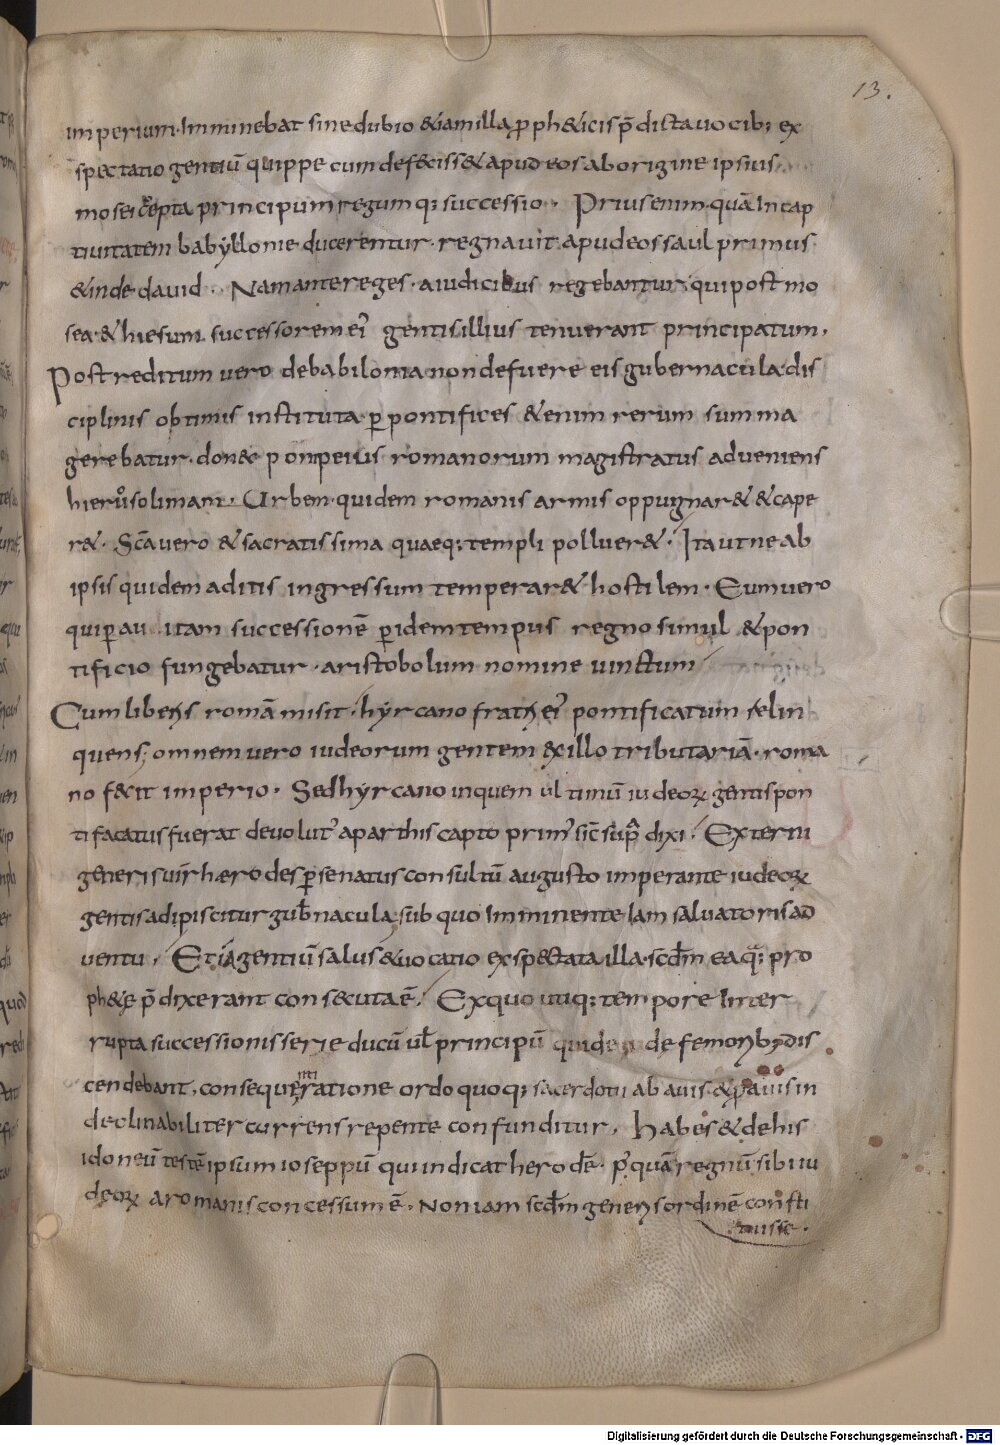 13.
imperium. Imminebat sine dubio & iam illa p̱ ph&icis p̄dicta uocib; ex
spectatio gentiū quippe cum defeciss& apud eos ab origine ipsius
mosei cepta principum regumq; successio. Prius enim quā In cap
tiuitatem babyllonie ducerentur. regnauit apud eos saul primus
& inde dauid. Nam ante reges. a iudicibus regebantur. qui post mo
sea. & hiesum successorem ei' gentis illius tenuerant principatum.
Post reditum uero de babilonia non defuere eis gubernacula dis
ciplinis obtimis instituta p̱ pontifices &enim rerum summa
gerebatur. donec pompeius romanorum magistratus adueniens
hierusolimam. Urbem quidem romanis armis oppugnar& & cape
r&. Sc̄a uero & sacratissima quaeq; templi polluer&. Ita ut ne ab
ipsis quidem aditis ingressum temperar& hostilem. Eum uero
qui p̱ au itam successionē p̱ idem tempus regno simul & pon
tificio fungebatur. aristobolum nomine uinctum
Cum liberis romā misit. hyrcano fratri ei' pontificatum relin
quens; omnem uero iudeorum gentem ex illo tributariā. roma
no fecit imperio. Sed hyrcano in quem ultimū iudeoꝝ gentis pon
tificatus fuerat deuolut' a parthis capto prim' sic̄ sup̄ dixi. Externi
generis uir herodes p̱ senatus consultū augusto imperante iudeoꝝ
gentis adipiscitur gub̄nacula, sub quo Imminente Iam saluatoris ad
uentu. Etiā gentiū salus & uocatio exspectata illa. scd̄m ea q̄; pro
ph&e p̄dixerant consecuta ē. Ex quo utiq; tempore Inter
rupta successionis serie ducū ul̄ principū quidem de femorib; dis
cendebant, consequenti ratione ordo quoq; sacerdotii ab auis & p̱auis in
declinabiliter currens repente confunditur. Habes & de his
idoneū testē ipsum ioseppū qui indicat herodē. p' quā regnū sibi iu
deoꝝ a romanis concessum ē. Non iam scd̄m generis ordinē consti
tuisse.
Digitalisierung gefördert durch die Deutsche Forschungsgemeinschaft - DFG